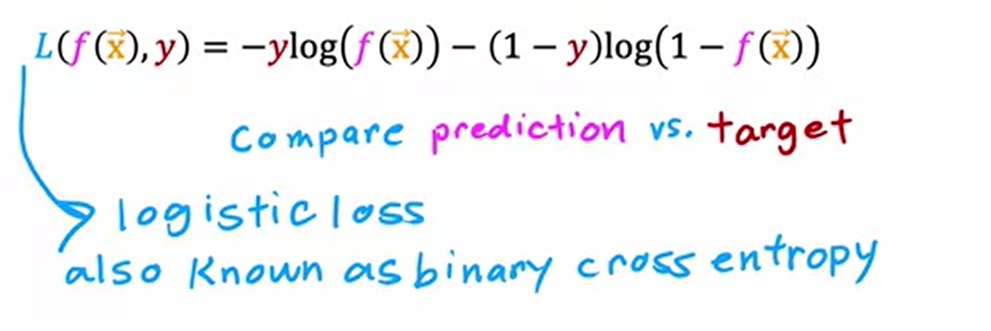 L(f(x⃗), y) = −ylog(f(x⃗)) − (1 − y)log(1 − f(x⃗))
Compare prediction vs. target
logistic loss
also Known as binary cross entropy